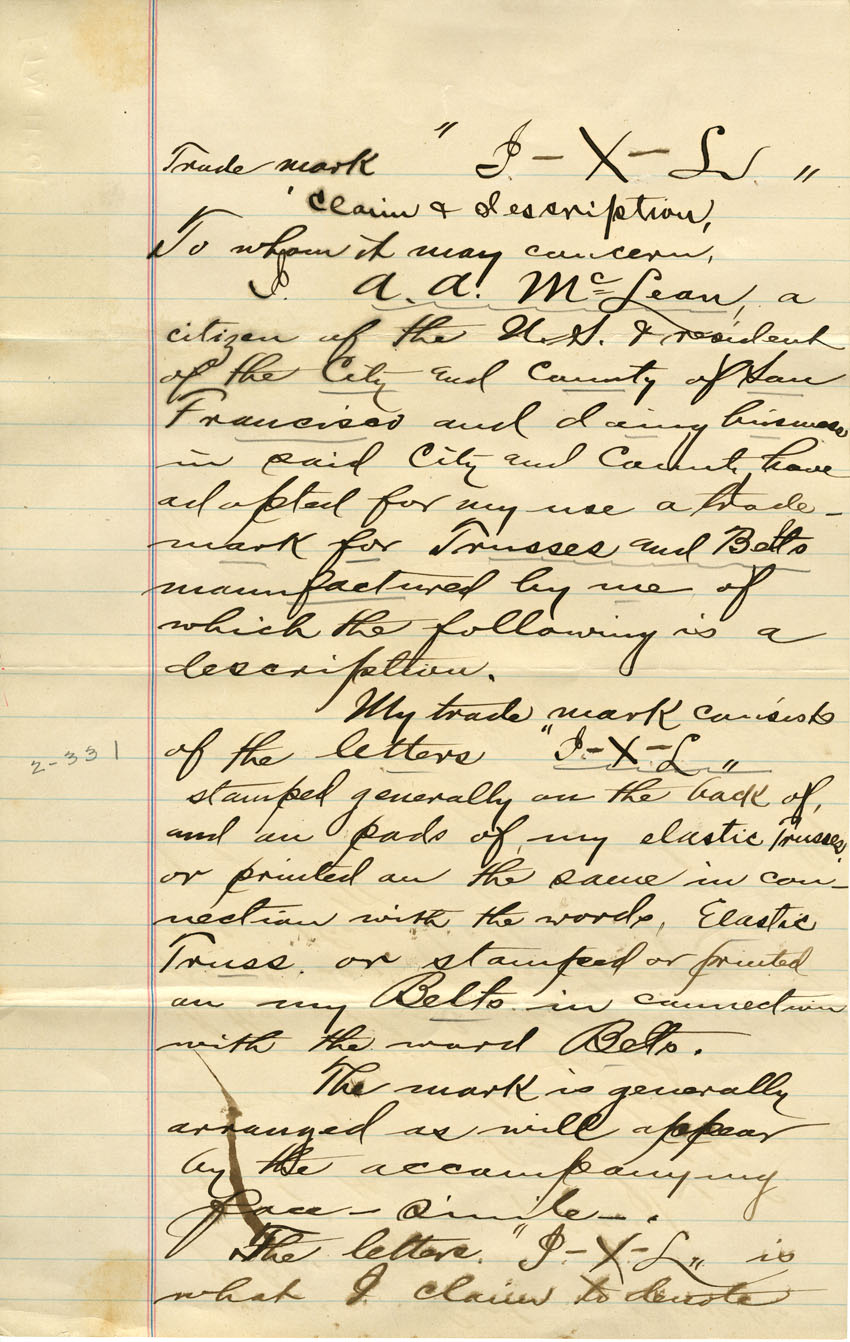 Trade mark " I - X - L "
claim & description,
To whom it may concern,
I. A. A. McLean, a
citizen of the U.S. & resident
of the City and County of San
Francisco and doing business
in said City and County have
adopted for my use a trade-
mark for Trusses and Belts
manufactured by me of
which the following is a
description.
My trade mark consists
of the letters "I-X-L"
2-331
stamped generally on the back of,
and on pads of, my elastic Trusses,
or printed on the same in con-
nection with the words, Elastic
Truss. or stamped or printed
on my Belts in connection
with the word Belts.
The mark is generally
arranged as will appear
by the accompanying
face-simile-.
The letters "I-X-L" is
what I claim to denote